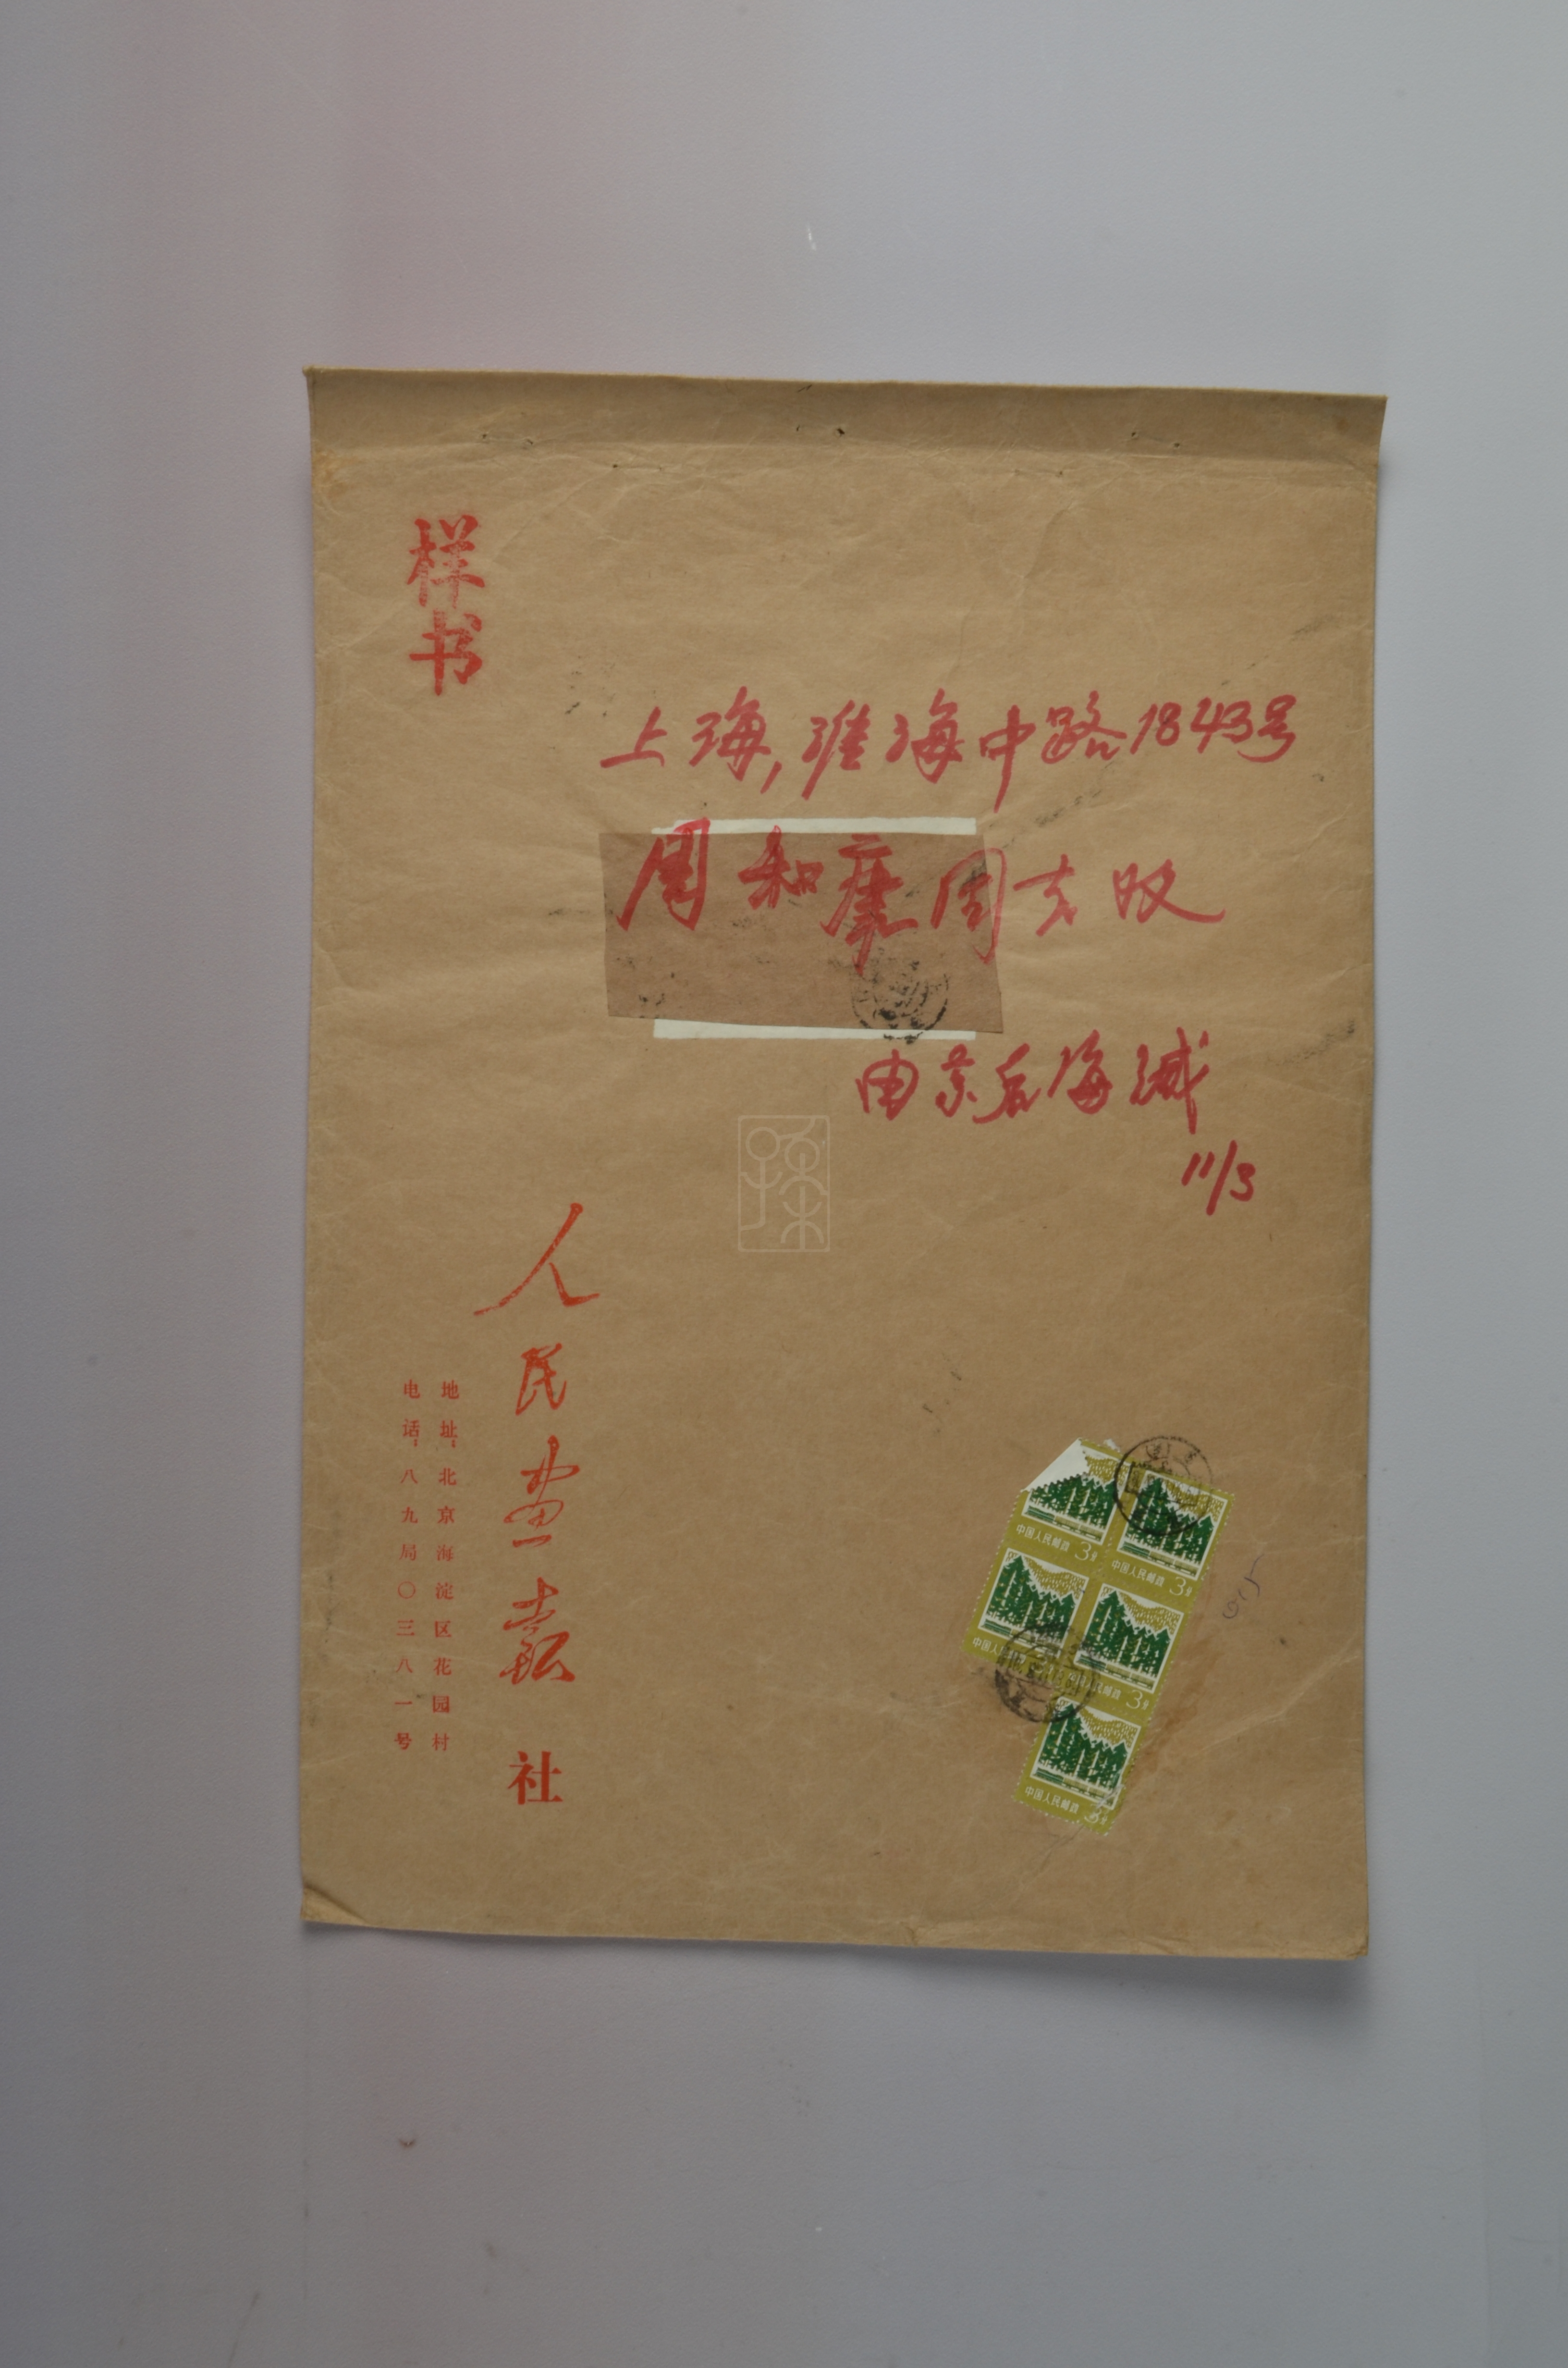 样书
上海,淮海中路1843号
周和康同志收
由京后海缄
11/3
人民画报社
地址:北京海淀区花园村
电话:八九局〇三八一号
中国人民邮政 3分
中国人民邮政 3分
中国人
人民邮政 3分
中国人民邮政 3分